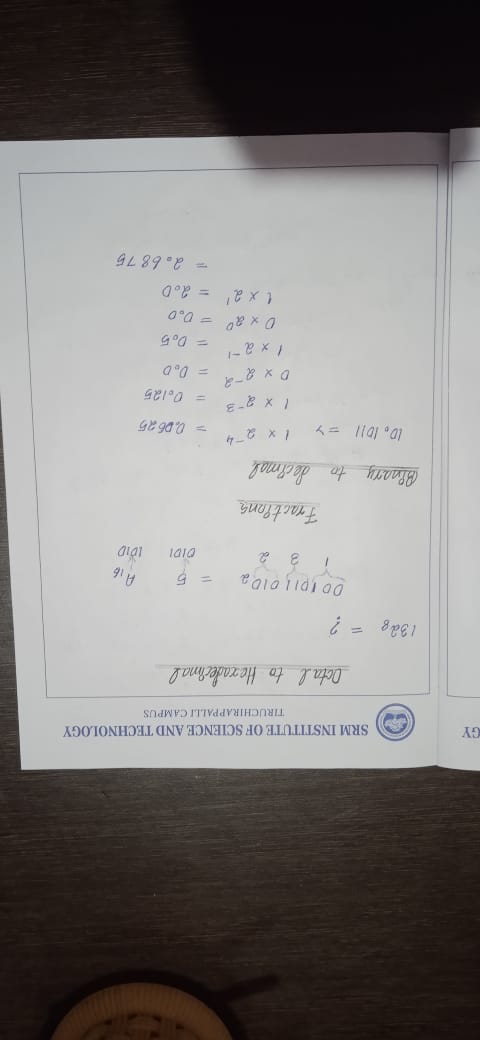 SRM INSTITUTE OF SCIENCE AND TECHNOLOGY
TIRUCHIRAPPALLI CAMPUS
GY
Octal to Hexadecimal
132₈ = ?
001011010₂ = 5 A₁₆
1 3 2 0101 1010
Fractions
Binary to decimal
10.1011 => 1 x 2⁻⁴ = 0.0625
1 x 2⁻³ = 0.125
0 x 2⁻² = 0.0
1 x 2⁻¹ = 0.5
0 x 2⁰ = 0.0
1 x 2¹ = 2.0
= 2.6875